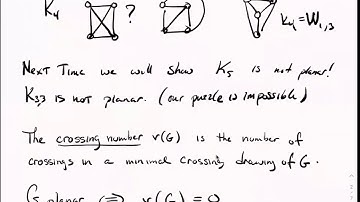 K₄ ? K₄ = W₁,₃
Next Time we will show K₅ is not planar!
K₃,₃ is not planar. (our puzzle is impossible)
The crossing number ν(G) is the number of
crossings in a minimal crossing drawing of G.
G planar ⟺ ν(G) = 0